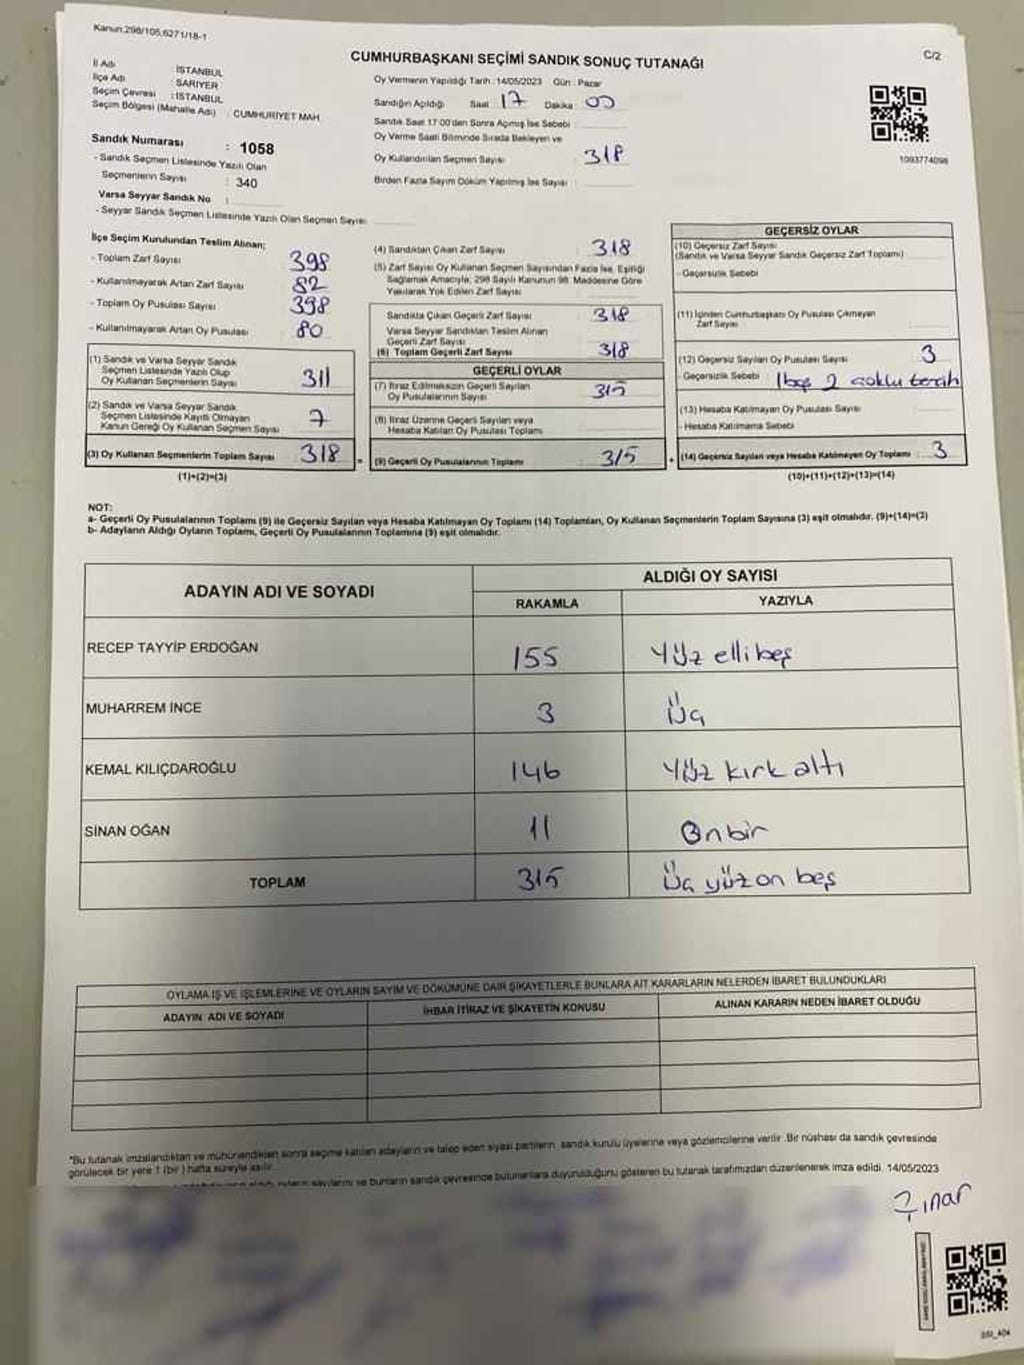 Kanun:298/105,6271/18-1
C/2
CUMHURBAŞKANI SEÇİMİ SANDIK SONUÇ TUTANAĞI
İl Adı : İSTANBUL
İlçe Adı : SARIYER
Seçim Çevresi : İSTANBUL
Seçim Bölgesi (Mahalle Adı) : CUMHURİYET MAH.
Sandık Numarası : 1058
- Sandık Seçmen Listesinde Yazılı Olan
Seçmenlerin Sayısı : 340
Varsa Seyyar Sandık No :
- Seyyar Sandık Seçmen Listesinde Yazılı Olan Seçmen Sayısı:
Oy Vermenin Yapıldığı Tarih :14/05/2023 Gün : Pazar
Sandığın Açıldığı Saat 17 Dakika 00
Sandık Saat 17:00'den Sonra Açmış İse Sebebi :
Oy Verme Saati Bitiminde Sırada Bekleyen ve
Oy Kullandırılan Seçmen Sayısı : 318
Birden Fazla Sayım Döküm Yapılmış İse Sayısı :
1093774098
İlçe Seçim Kurulundan Teslim Alınan;
- Toplam Zarf Sayısı : 398
- Kullanılmayarak Artan Zarf Sayısı : 82
- Toplam Oy Pusulası Sayısı : 398
- Kullanılmayarak Artan Oy Pusulası : 80
(1) Sandık ve Varsa Seyyar Sandık
Seçmen Listesinde Yazılı Olup
Oy Kullanan Seçmenlerin Sayısı : 311
(2) Sandık ve Varsa Seyyar Sandık
Seçmen Listesinde Kayıtlı Olmayan
Kanun Gereği Oy Kullanan Seçmen Sayısı : 7
(3) Oy Kullanan Seçmenlerin Toplam Sayısı : 318
(1)+(2)=(3)
(4) Sandıktan Çıkan Zarf Sayısı : 318
(5) Zarf Sayısı Oy Kullanan Seçmen Sayısından Fazla İse, Eşitliği
Sağlamak Amacıyla, 298 Sayılı Kanunun 98. Maddesine Göre
Yakılarak Yok Edilen Zarf Sayısı :
Sandıkta Çıkan Geçerli Zarf Sayısı : 318
Varsa Seyyar Sandıktan Teslim Alınan
Geçerli Zarf Sayısı :
(6) Toplam Geçerli Zarf Sayısı : 318
GEÇERLİ OYLAR
(7) İtiraz Edilmeksizin Geçerli Sayılan
Oy Pusulalarının Sayısı : 315
(8) İtiraz Üzerine Geçerli Sayılan veya
Hesaba Katılan Oy Pusulası Toplamı :
(9) Geçerli Oy Pusulalarının Toplamı : 315
GEÇERSİZ OYLAR
(10) Geçersiz Zarf Sayısı
(Sandık ve Varsa Seyyar Sandık Geçersiz Zarf Toplamı) :
- Geçersizlik Sebebi :
(11) İçinden Cumhurbaşkanı Oy Pusulası Çıkmayan
Zarf Sayısı :
(12) Geçersiz Sayılan Oy Pusulası Sayısı : 3
- Geçersizlik Sebebi : 1 boş 2 çoklu tercih
(13) Hesaba Katılmayan Oy Pusulası Sayısı :
- Hesaba Katılmama Sebebi :
(14) Geçersiz Sayılan veya Hesaba Katılmayan Oy Toplamı : 3
(10)+(11)+(12)+(13)=(14)
NOT:
a- Geçerli Oy Pusulalarının Toplamı (9) ile Geçersiz Sayılan veya Hesaba Katılmayan Oy Toplamı (14) Toplamları, Oy Kullanan Seçmenlerin Toplam Sayısına (3) eşit olmalıdır. (9)+(14)=(3)
b- Adayların Aldığı Oyların Toplamı, Geçerli Oy Pusulalarının Toplamına (9) eşit olmalıdır.
ADAYIN ADI VE SOYADI ALDIĞI OY SAYISI
RAKAMLA YAZIYLA
RECEP TAYYİP ERDOĞAN 155 Yüz elli beş
MUHARREM İNCE 3 Üç
KEMAL KILIÇDAROĞLU 146 Yüz kırk altı
SİNAN OĞAN 11 On bir
TOPLAM 315 Üç yüz on beş
OYLAMA İŞ VE İŞLEMLERİNE VE OYLARIN SAYIM VE DÖKÜMÜNE DAİR ŞİKAYETLERLE BUNLARA AİT KARARLARIN NELERDEN İBARET BULUNDUKLARI
ADAYIN ADI VE SOYADI İHBAR İTİRAZ VE ŞİKAYETİN KONUSU ALINAN KARARIN NEDEN İBARET OLDUĞU
*Bu tutanak imzalandıktan ve mühürlendikten sonra seçime katılan adayların ve talep eden siyasi partilerin sandık kurulu üyelerine veya gözlemcilerine verilir .Bir nüshası da sandık çevresinde
görülecek bir yere 1 (bir ) hafta süreyle asılır.
oyların sayılarını ve bunların sandık çevresinde bulunanlara duyurulduğunu gösteren bu tutanak tarafımızdan düzenlenerek imza edildi. 14/05/2023
Çınar